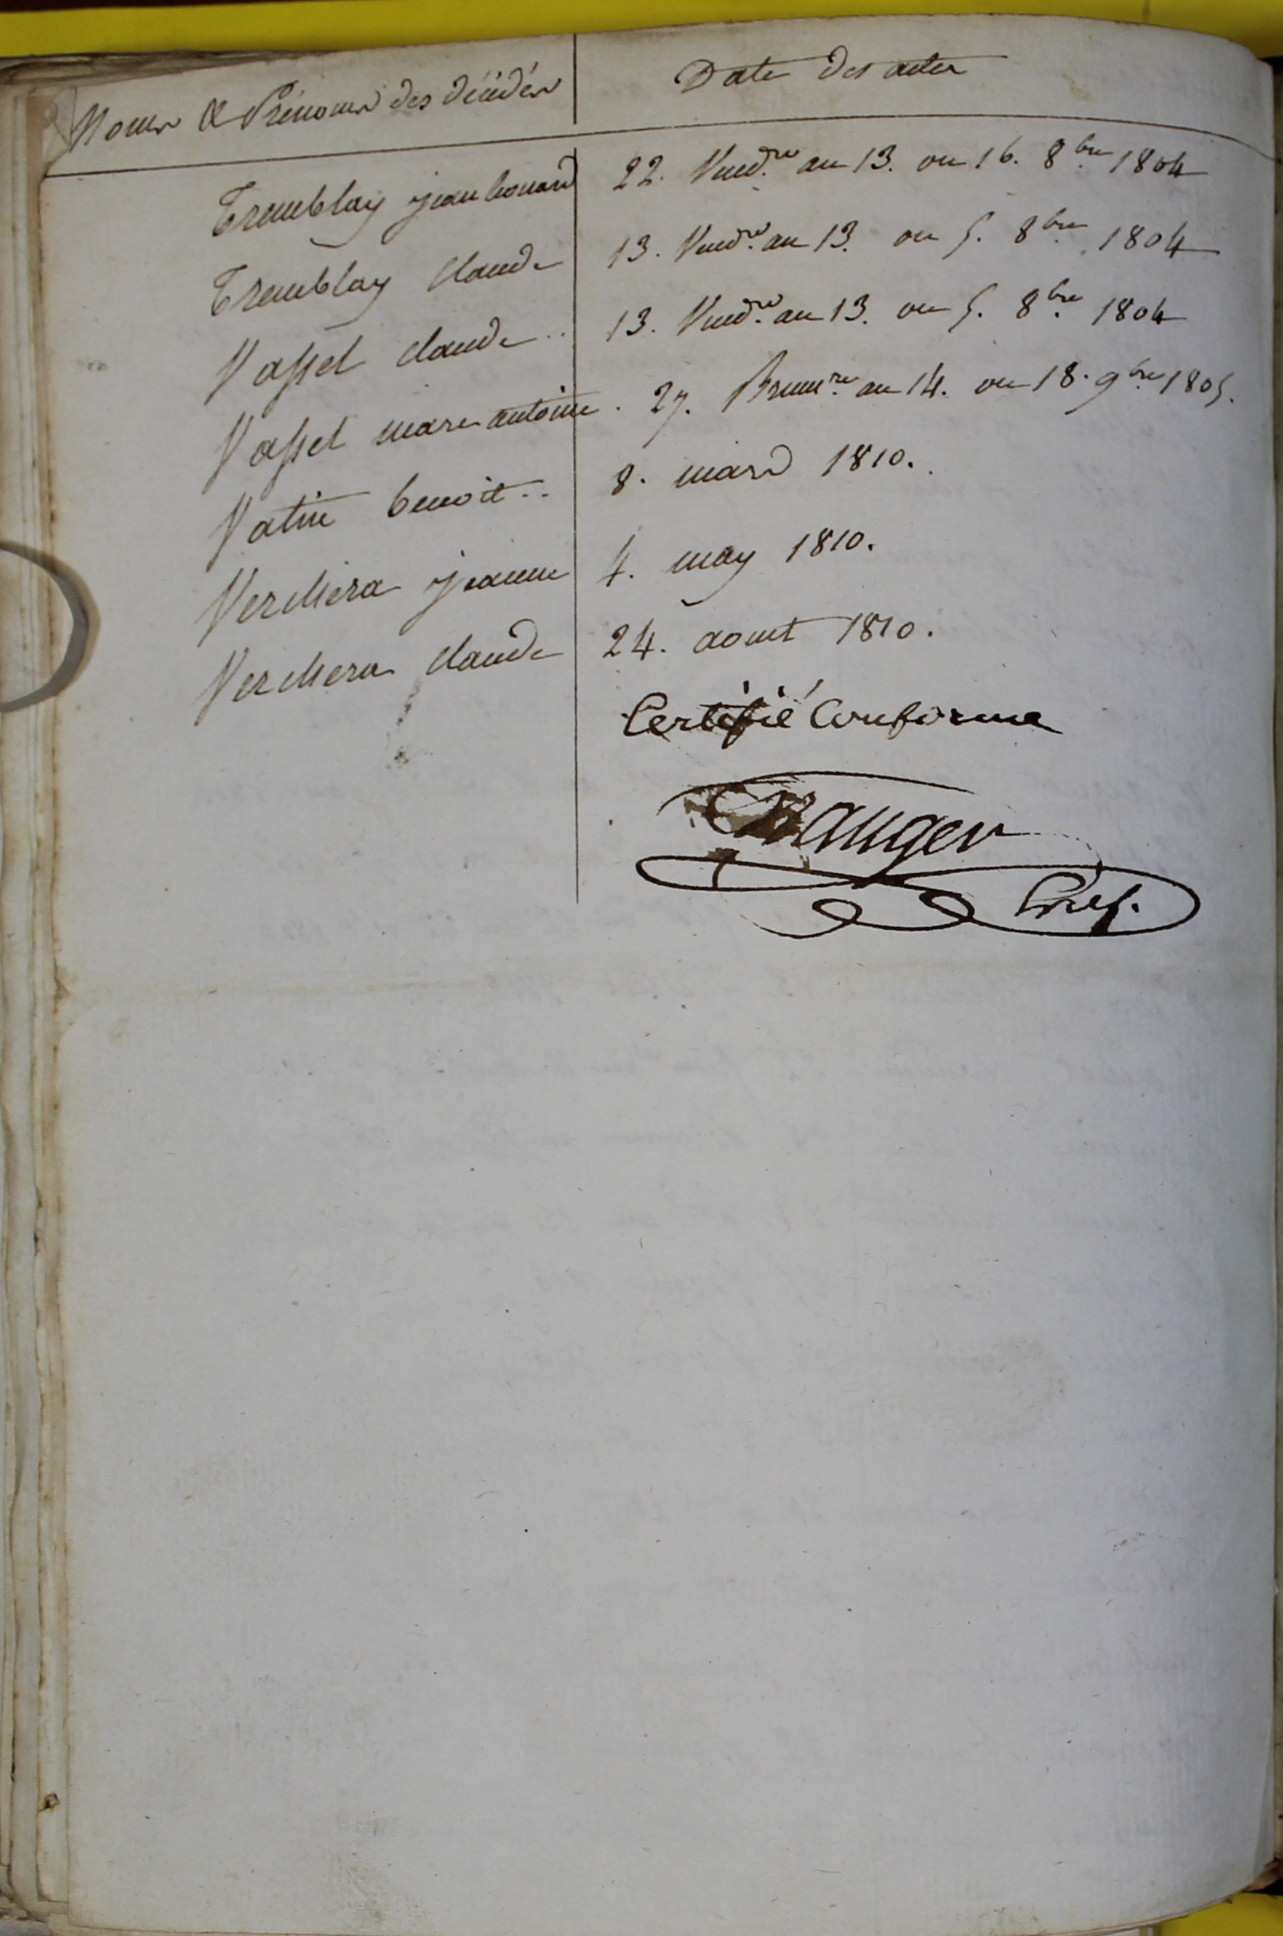 Noms & Prénoms des décédés Date des actes
Tremblay jean Conard 22. Vend.re an 13. ou 16. 8.bre 1804
Tremblay Claude 13. Vend.re an 13. ou 5. 8.bre 1804
Vassel claude .. 13. Vend.re an 13. ou 5. 8.bre 1804
Vassel marc antoine . 27. Brum.re an 14. ou 18. 9.bre 1805.
Vatin benoit .. 8. mars 1810.
Verchera jeanne 4. may 1810.
Verchera Claude 24. aout 1810.
Certifié Conforme